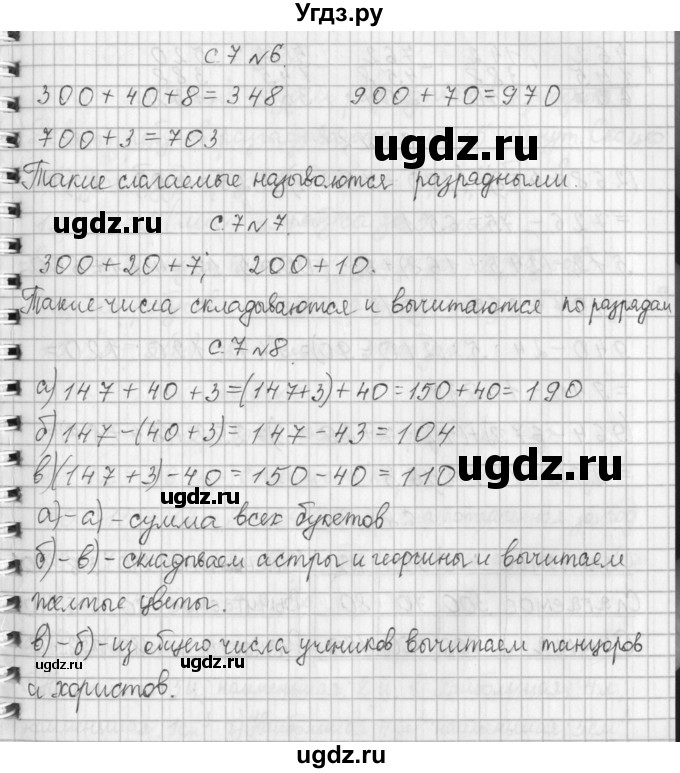 Угдз.ру
с.7 №6.
300+40+8=348 900+70=970
700+3=703
ugdz.ru
Такие слагаемые называются разрядными.
ugdz.ru с.7 №7.
300+20+7; 200+10.
Такие числа складываются и вычитаются по разрядам
с.7 №8.
а) 147+40+3=(147+3)+40=150+40=190
б) 147-(40+3)=147-43=104
в) (147+3)-40=150-40=110
ugdz.ru
ugdz.ru
а)-а)-сумма всех букетов
б)-в)-складываем астры и георгины и вычитаем
желтые цветы.
в)-б)-из общего числа учеников вычитаем танцоров
ugdz.ru ugdz.ru
и хористов.
ugdz.ru